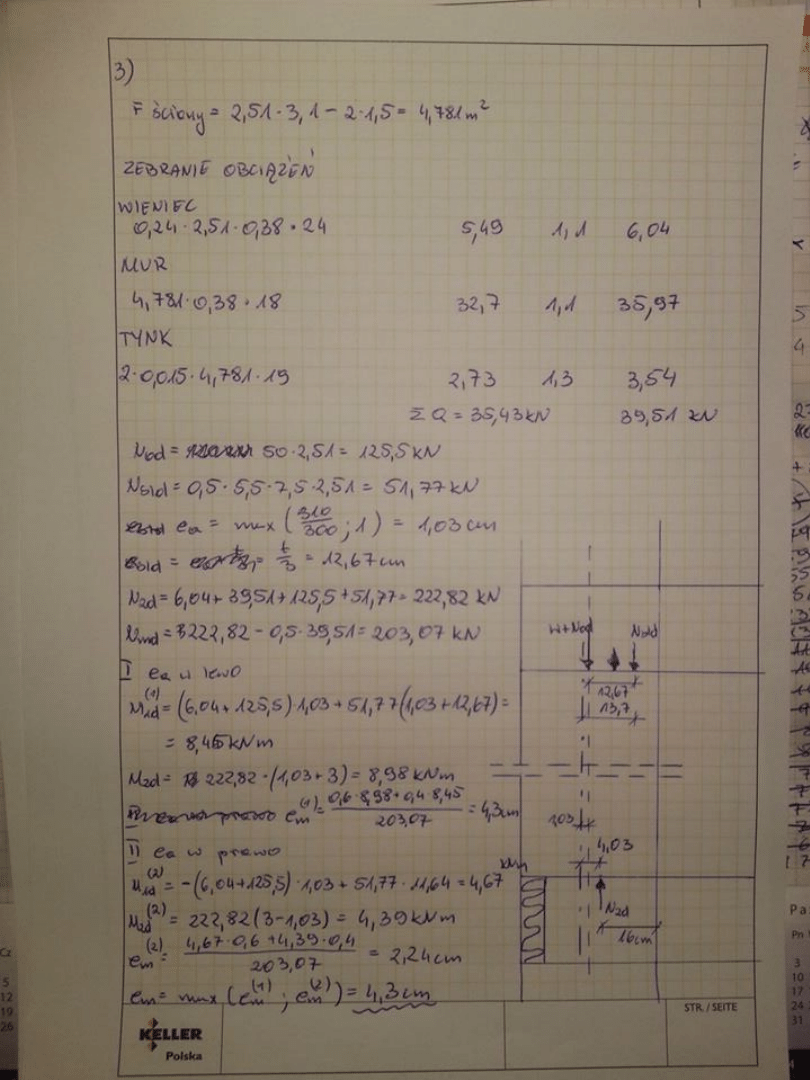 3)
F ściany = 2,51 · 3,1 - 2 · 1,5 = 4,781 m²
ZEBRANIE OBCIĄŻEŃ
WIENIEC
0,24 · 2,51 · 0,38 · 24 5,49 1,1 6,04
MUR
4,781 · 0,38 · 18 32,7 1,1 35,97
TYNK
2 · 0,015 · 4,781 · 19 2,73 1,3 3,54
Σ Q = 35,43 kN 39,51 kN
Nod = 50 · 2,51 = 125,5 kN
Nsld = 0,5 · 5,5 · 7,5 · 2,51 = 51,77 kN
ea = max (310/300 ; 1) = 1,03 cm
esld = t/3 = 12,67 cm
N2d = 6,04 + 39,51 + 125,5 + 51,77 = 222,82 kN
Nmd = 222,82 - 0,5 · 39,51 = 203,07 kN
I ea w lewo
M1d(1) = (6,04 + 125,5) · 1,03 + 51,77 (1,03 + 12,67) =
= 8,45 kNm
M2d = 222,82 · (1,03 + 3) = 8,98 kNm
em(1) = 0,6 · 8,98 + 0,4 · 8,45 / 203,07 = 4,3 cm
II ea w prawo
M1d(2) = -(6,04 + 125,5) · 1,03 + 51,77 · 11,64 = 4,67 kNm
M2d(2) = 222,82 (3 - 1,03) = 4,39 kNm
em(2) = 4,67 · 0,6 + 4,39 · 0,4 / 203,07 = 2,24 cm
em = max (em(1) ; em(2)) = 4,3 cm
W+Nod Nsld
12,67
13,7
1,03
4,03
N2d
16cm
STR. / SEITE
KELLER
Polska